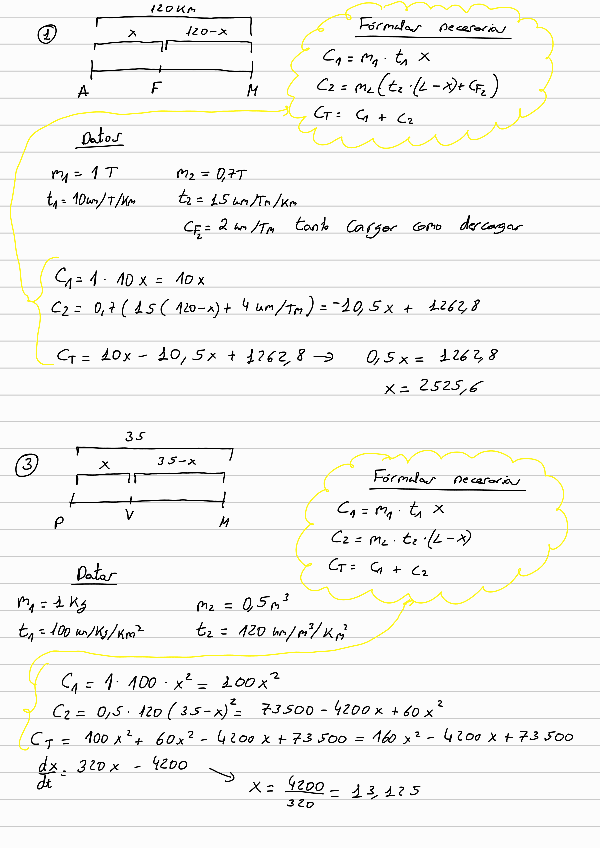 120 Km
① x 120-x
A F M
Fórmulas necesarias
C₁ = m₁ · t₁ x
C₂ = m₂ (t₂ · (L-x) + CF₂)
CT = C₁ + C₂
Datos
m₁ = 1 T m₂ = 0,7T
t₁ = 10um/T/Km t₂ = 15 um/Tm/Km
CF₂ = 2 um/Tm tanto cargar como descargar
C₁ = 1 · 10x = 10x
C₂ = 0,7 (15 (120-x) + 4 um/Tm) = -10,5x + 1262,8
CT = 10x - 10,5x + 1262,8 → 0,5x = 1262,8
x = 2525,6
35
③ x 35-x
P V M
Fórmulas necesarias
C₁ = m₁ · t₁ x
C₂ = m₂ · t₂ · (L-x)
CT = C₁ + C₂
Datos
m₁ = 1 Kg m₂ = 0,5 m³
t₁ = 100 um/Kg/Km² t₂ = 120 um/m³/Km²
C₁ = 1 · 100 · x² = 100x²
C₂ = 0,5 · 120 (35-x)² = 73500 - 4200x + 60x²
CT = 100x² + 60x² - 4200x + 73500 = 160x² - 4200x + 73500
dx/dt = 320x - 4200
x = 4200/320 = 13,125